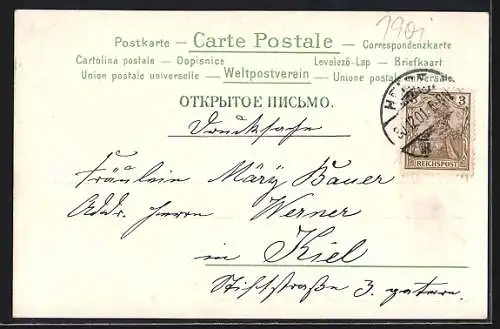 1901
Postkarte — Carte Postale — Correspondenzkarte
Cartolina postale — Dopisnice Levelező-Lap — Briefkaart
Union postale universelle — Weltpostverein — Unione postale universale.
ОТКРЫТОЕ ПИСЬМО.
3
REICHSPOST
Drucksache
Fräulein Märy Bauer
Addr. Herrn Werner
in Kiel
Stiftstraße 3. parterre.